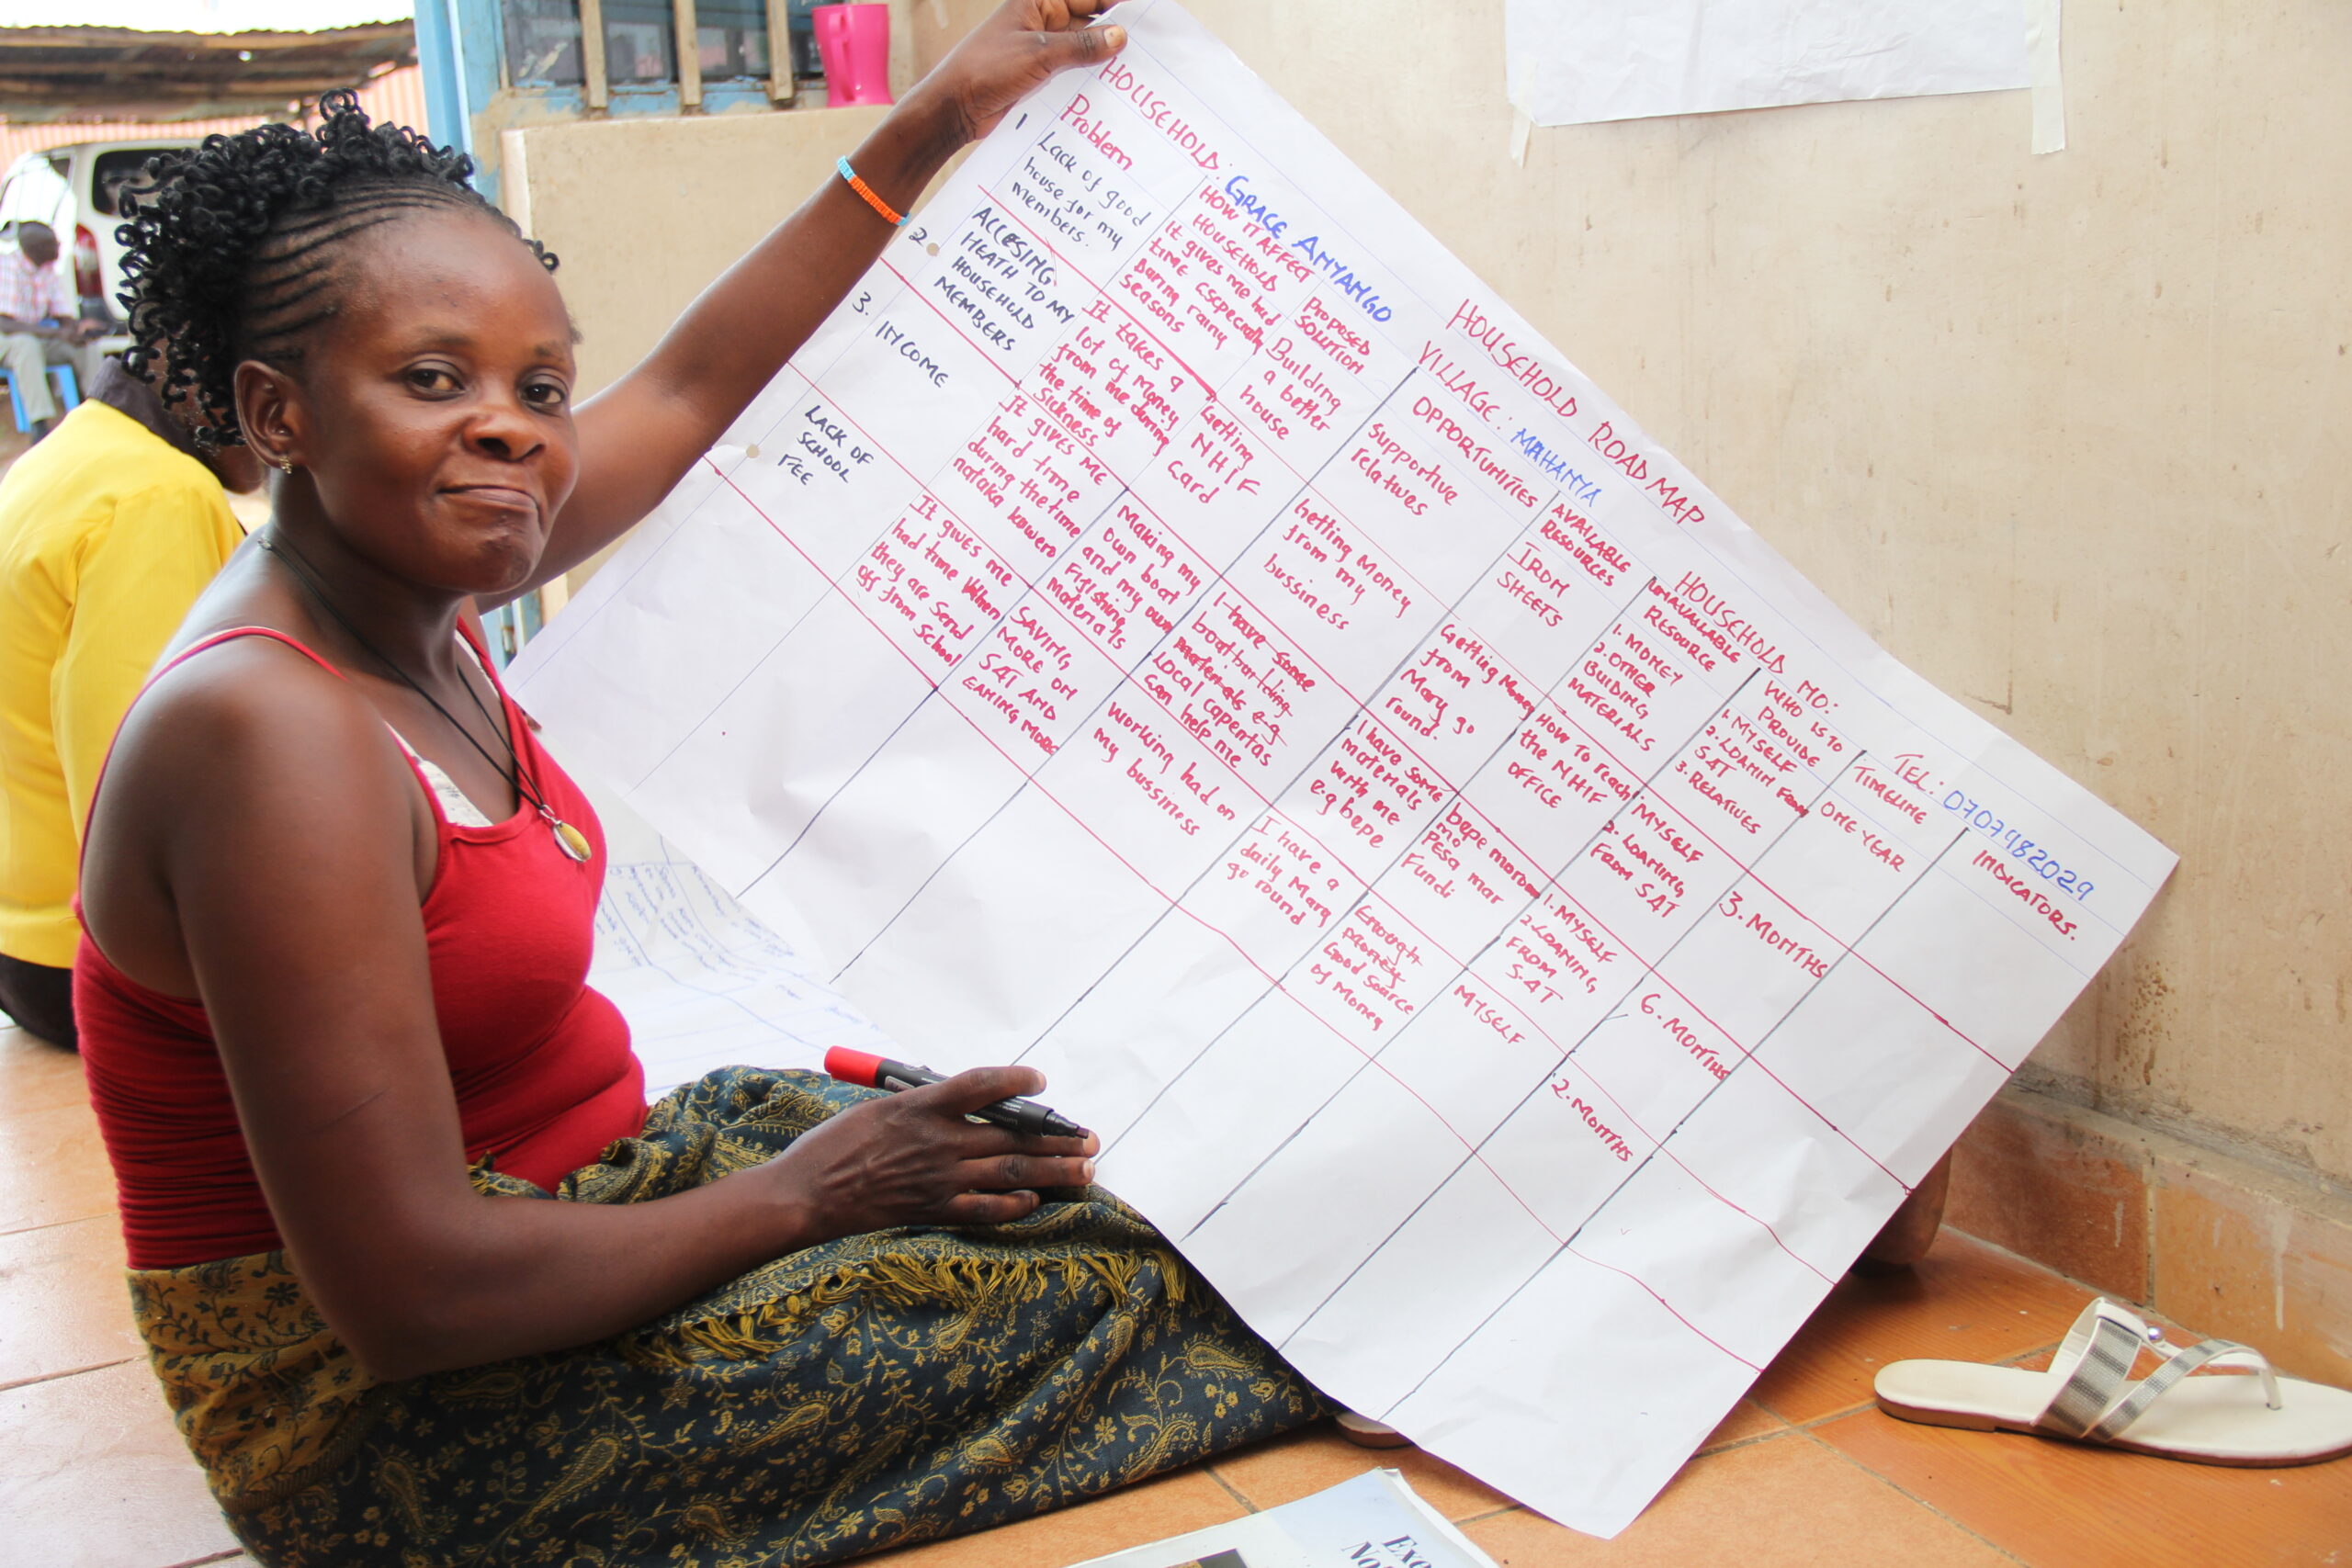 HOUSEHOLD ROAD MAP
HOUSEHOLD: GRACE ANYANGO
VILLAGE: MAHANYA
HOUSEHOLD NO:
TEL: 0707982029
Problem
HOW IT AFFECT
HOUSEHOLD
PROPOSED
SOLUTION
OPPORTUNITIES
AVAILABLE
RESOURCES
UNAVAILABLE
RESOURCE
WHO IS TO
PROVIDE
TIMELINE
INDICATORS.
1
Lack of good
house for my
members.
It gives me had
time especially
During rainy
seasons
Building
a better
house
Supportive
relatives
IRON
SHEETS
1. MONEY
2. OTHER
BUIDING
MATERIALS
1. MYSELF
2. LOANIN FROM
S4T
3. RELATIVES
ONE YEAR
2.
ACCESING
HEATH TO MY
HOUSEHOLD
MEMBERS
It takes a
lot of money
from me during
the time of
Sickness
Getting
NHIF
Card
Getting Money
from my
bussiness
Getting Money
from
Mary go
round.
HOW TO reach
the NHIF
OFFICE
MYSELF
2. LOANING
FROM S4T
3. MONTHS
3.
INCOME
It gives me
hard time
during the time
nafaka kowero
Making my
own boat
and my own
Fishing
materials
I have some
boat building
materials e.g
Local capentas
can help me
I have some
materials
with me
e.g bepe
bepe morom
mo
PESA mar
Fundi
1. MYSELF
2. LOANING
FROM
S4T
6. MONTHS
LACK OF
SCHOOL
FEE
It gives me
had time when
they are Send
off from school
SAVING
MORE ON
S4T AND
EANING MORE
Working had on
my bussiness
I have a
daily Mary
go round
Enough
Money
Good Source
of Money
MYSELF
2. MONTHS